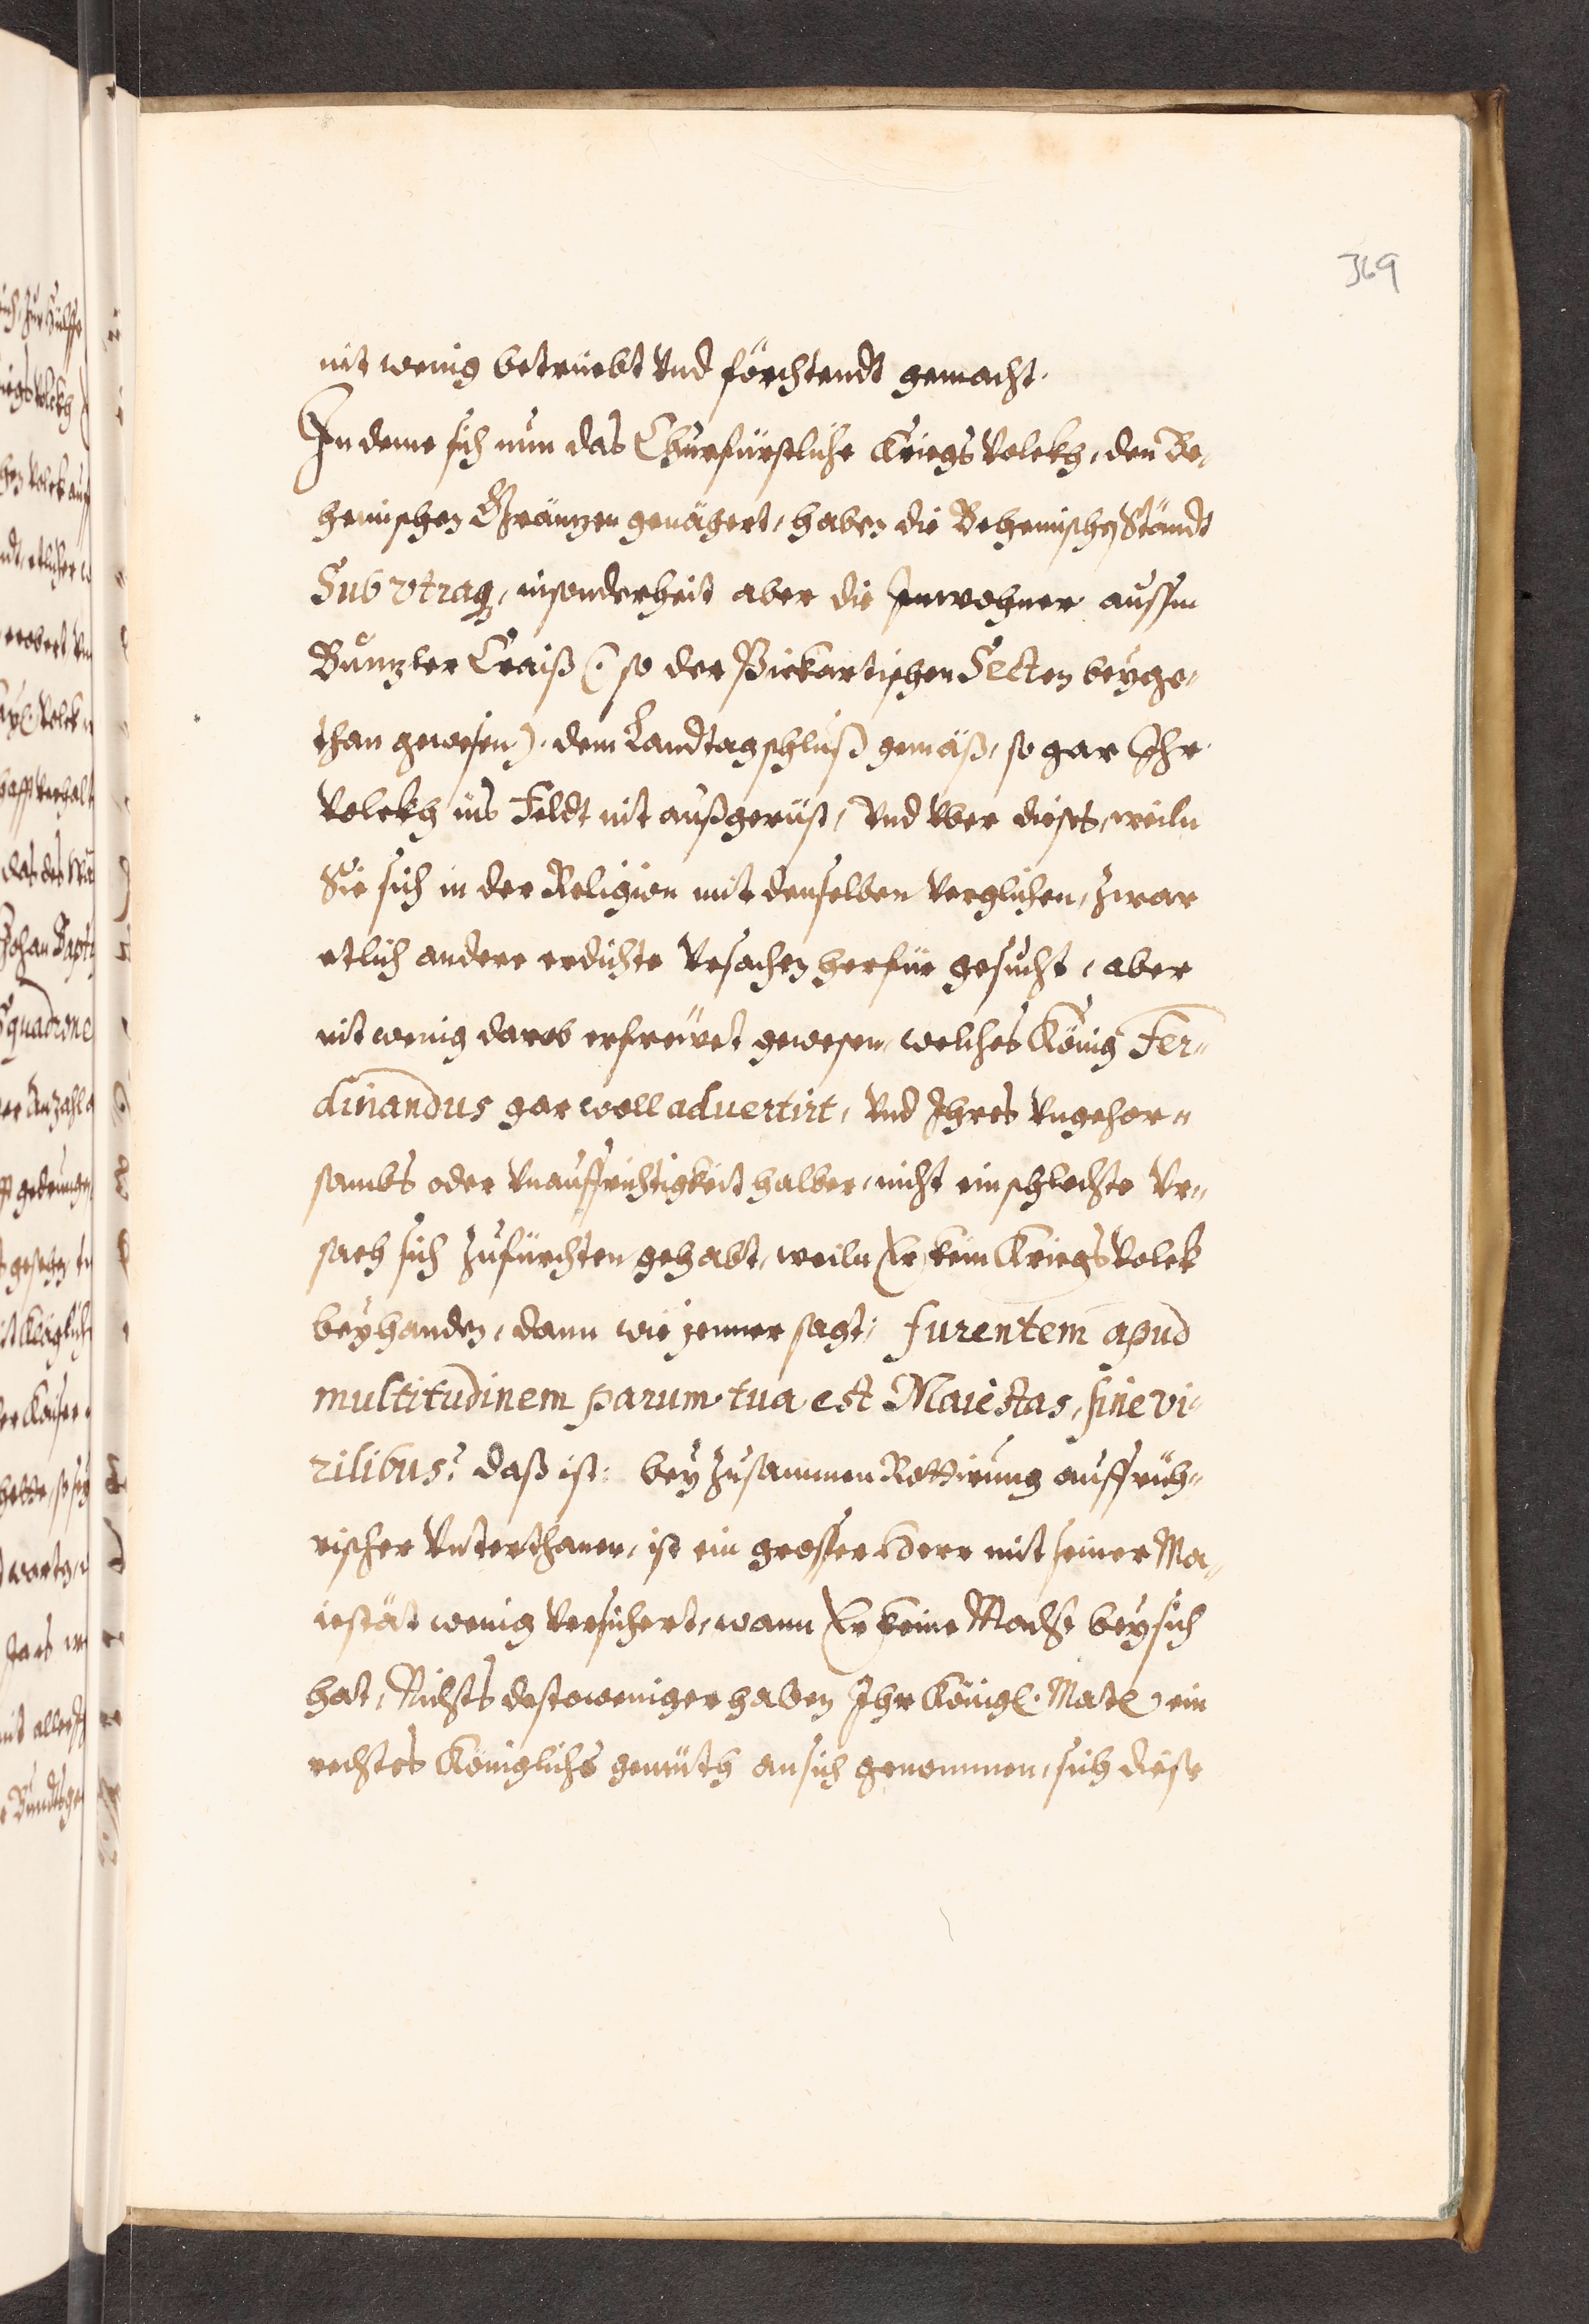 369
nit wenig betruebt Vnd förchtendt gemacht.
In deme sich nun das Churfürstliche Kriegs Volckh, den Be,
hemischen Gränzen genähert, haben die Behemischen Ständt
Sub vtraq, insonderheit aber die Inwohner aussm
Buntzler Craiß (: so der Pickartischen Secten beyge,
than gewesen). dem Landtagschluß gemäß, so gar Ihr
Volckh ins Feldt nit außgerüst, Vnd Vber dieses, weiln
Sie sich in der Religion mit denselben Verglichen, Zwar
etlich andere erdichte Vrsachen herfür gesucht, aber
nit wenig darob erfreüet gewesen, welches König Fer„
dinandus gar woll aduertirt, Vnd Ihres Vngehor„
sambs oder Vnauffrichtigkeit halber, nicht ein schlechte Vr„
sach sich Zufürchten gehabt, weiln Er kein Kriegs Volck
beyhanden, dann wie jenner sagt: furentem apud
multitudinem parum tua est Maiestas, sine vi,
rilibus? daß ist: bey Zusammen Rottirung auffrüh„
rischer Vnterthanen, ist ein grosser Herr mit seiner Ma„
iestät wenig Versichert, wann Er keine Macht bey sich
hat, Nichts destoweniger haben Ihr Königl. Matl. ein
rechtes Königlichs gemüth an sich genommen, sich diese